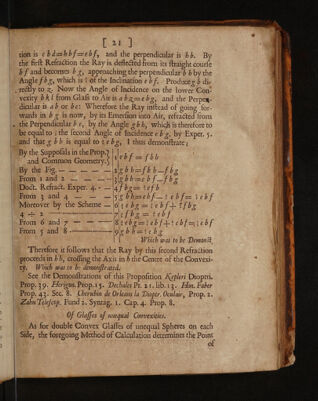 [ 21 ]
tion is c b d = h b f = e b f, and the perpendicular is b b. By
the first Refraction the Ray is deflected from its straight course
b f and becomes b g, approaching the perpendicular b b by the
Angle f b g, which is of the Inclination e b f. Produce g b di-
rectly to z. Now the Angle of Incidence on the lower Con-
vexity b k l from Glass to Air is a b z = e b g, and the Perpen-
dicular is a b or b e: Wherefore the Ray instead of going for-
wards in b g is now, by its Emersion into Air, refracted from
the Perpendicular b e, by the Angle g b h, which is therefore to
be equal to the second Angle of Incidence e b g, by Exper. 5.
and that g b h is equal to e b g, I thus demonstrate;
By the Supposals in the Prop.
and Common Geometry.
e b f = f b h
By the Fig. 2 g b h = f b h - f b g
From 1 and 2 3 g b h = e b f - f b g
Doct. Refract. Exper. 4. 4 f b g = e f b
From 3 and 4 5 g b h = e b f - e b f = e b f
Moreover by the Scheme 6 e b g = e b f + f b g
4 ÷ 2 7 f b g = e b f
From 6 and 7 8 e b g = e b f + e b f = e b f
From 5 and 8 9 g b h = e b g
Which was to be Demonst.
Therefore it follows that the Ray by this second Refraction
proceeds in b h, crossing the Axis in h the Centre of the Convexi-
ty. Which was to be demonstrated.
See the Demonstrations of this Proposition Kepleri Dioptri.
Prop. 39. Herigon. Prop. 15. Dechales Pr. 21. lib. 13. Hon. Faber
Prop. 43. Sec. 8. Cherubin de Orleans la Dioptr. Oculaire, Prop. 2.
Zahn Telescop. Fund 2. Syntag. 1. Cap. 4. Prop. 8.
Of Glasses of unequal Convexities.
As for double Convex Glasses of unequal Spheres on each
Side, the foregoing Method of Calculation determines the Point
of